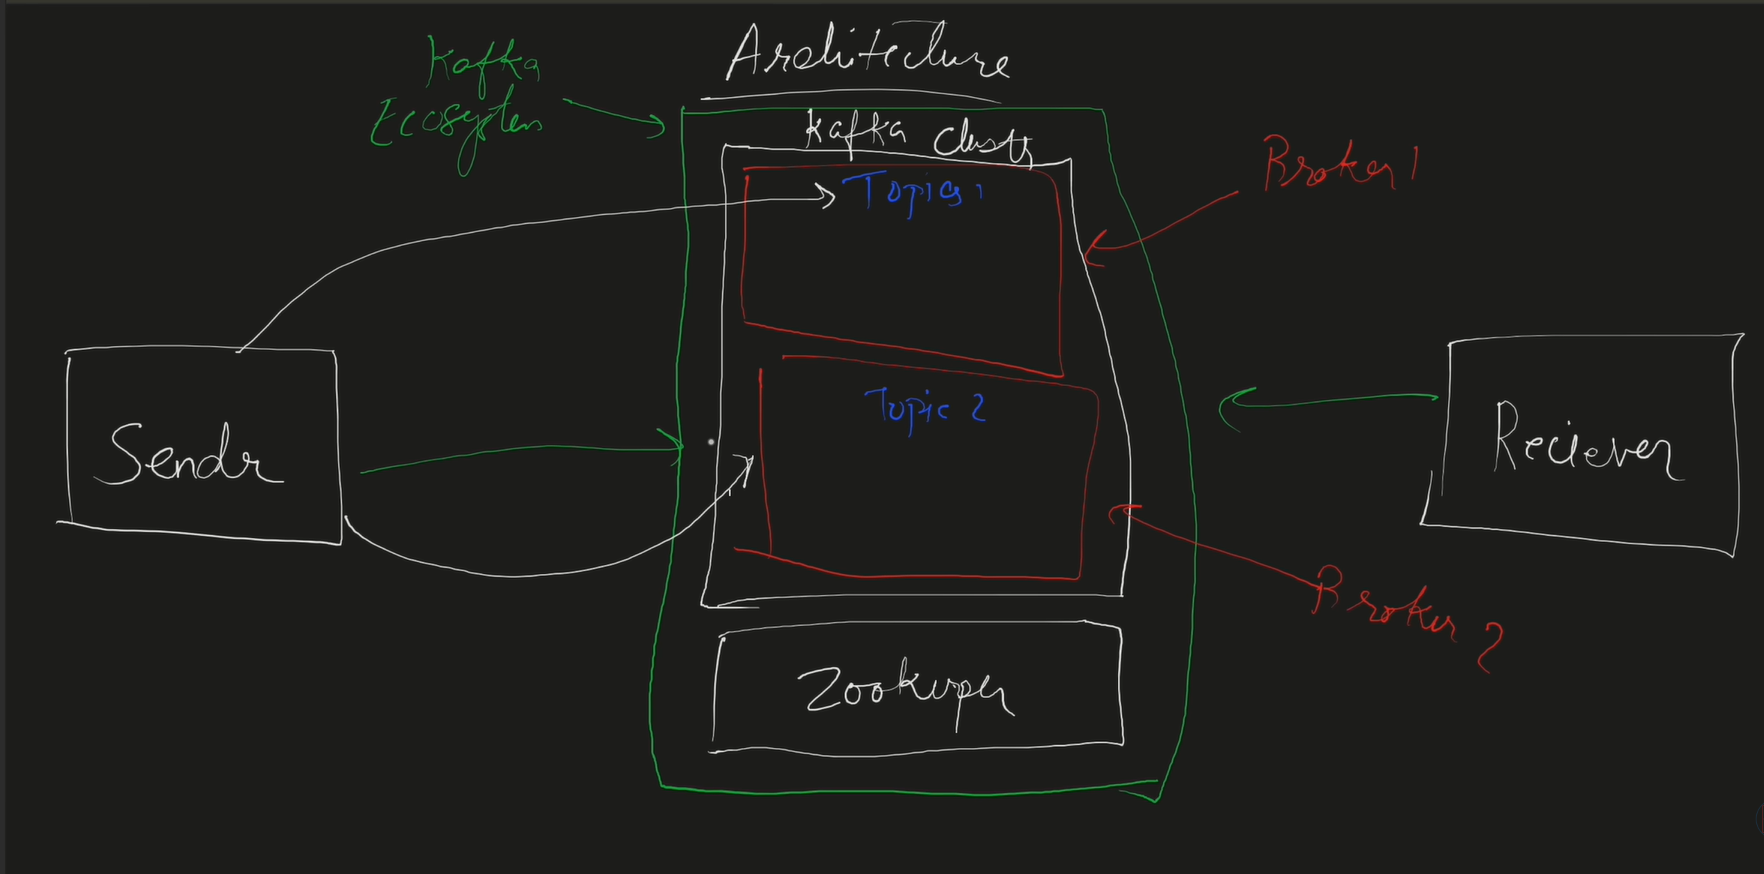 Architecture
Kafka
Ecosystem
Kafka Cluster
Topics 1
Broker 1
Sender
Topic 2
Reciever
Broker 2
Zookeeper